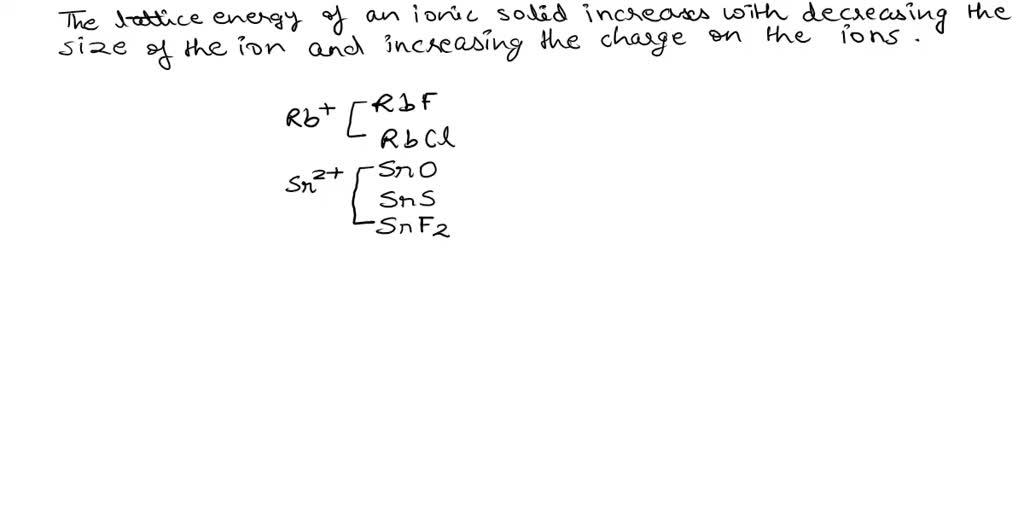 The lattice energy of an ionic solid increases with decreasing the
size of the ion and increasing the charge on the ions.
Rb+ RbF
RbCl
Sn2+ SnO
SnS
SnF2